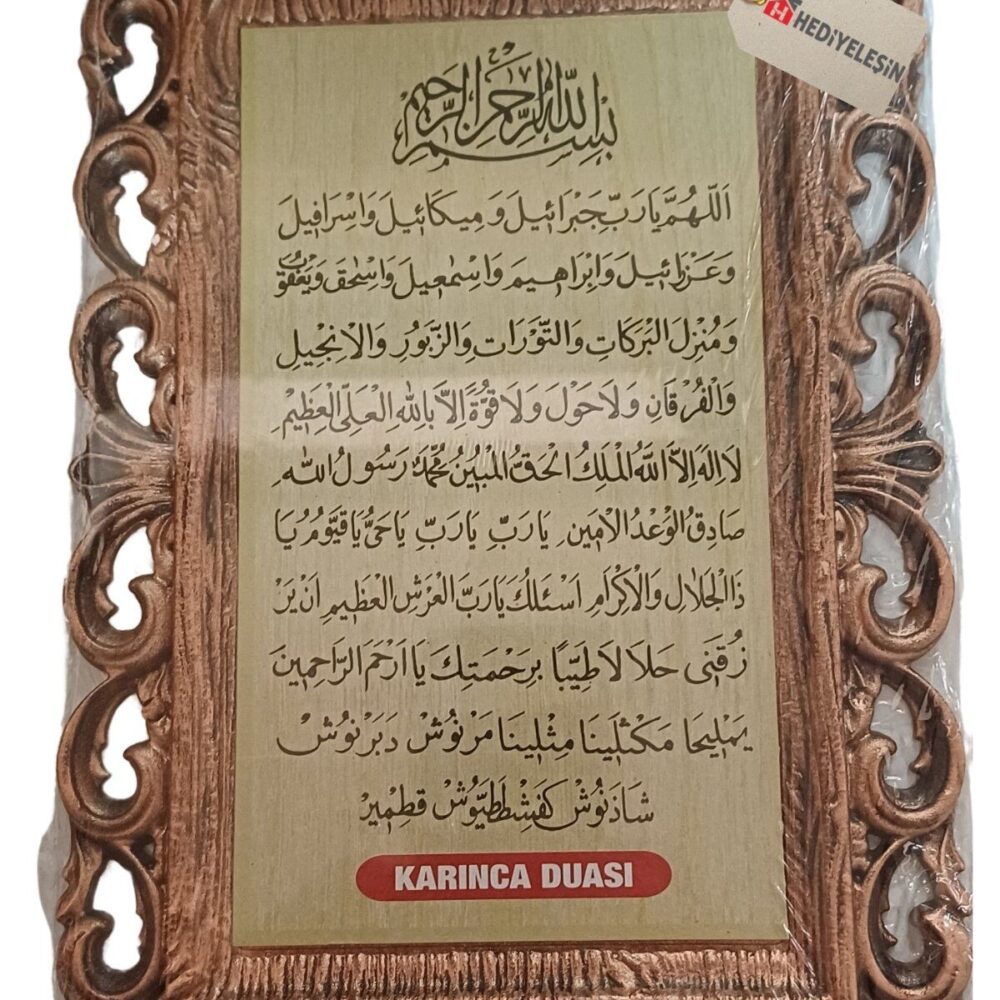 HEDİYELEŞİN
بِسْمِ اللهِ الرَّحْمٰنِ الرَّحِيمِ
اَللّٰهُمَّ يَا رَبَّ جَبْرَائِيلَ وَمِيكَائِيلَ وَاِسْرَافِيلَ
وَعَزْرَائِيلَ وَاِبْرَاهِيمَ وَاِسْمٰعِيلَ وَاِسْحٰقَ وَيَعْقُوبَ
وَمُنْزِلَ الْبَرَكَاتِ وَالتَّوْرَاتِ وَالزَّبُورِ وَالْاِنْجِيلِ
وَالْفُرْقَانِ وَلَا حَوْلَ وَلَا قُوَّةَ اِلَّا بِاللهِ الْعَلِىِّ الْعَظِيمِ
لَا اِلٰهَ اِلَّا اللهُ الْمَلِكُ الْحَقُّ الْمُبِينُ مُحَمَّدٌ رَسُولُ اللهِ
صَادِقُ الْوَعْدُ الْاَمِينِ يَا رَبِّ يَا رَبِّ يَا حَىُّ يَا قَيُّومُ يَا
ذَالْجَلَالِ وَالْاِكْرَامِ اَسْئَلُكَ يَا رَبَّ الْعَرْشِ الْعَظِيمِ اَنْ يَرْ
زُقَنِى حَلَالًا طَيِّبًا بِرَحْمَتِكَ يَا اَرْحَمَ الرَّاحِمِينَ
يَمْلِيخَا مَكْثَلِينَا مِثْلِينَا مَرْنُوشْ دَبَرْنُوشْ
شَاذَنُوشْ كَفَشْطَطَيُّوشْ قِطْمِيرْ
KARINCA DUASI